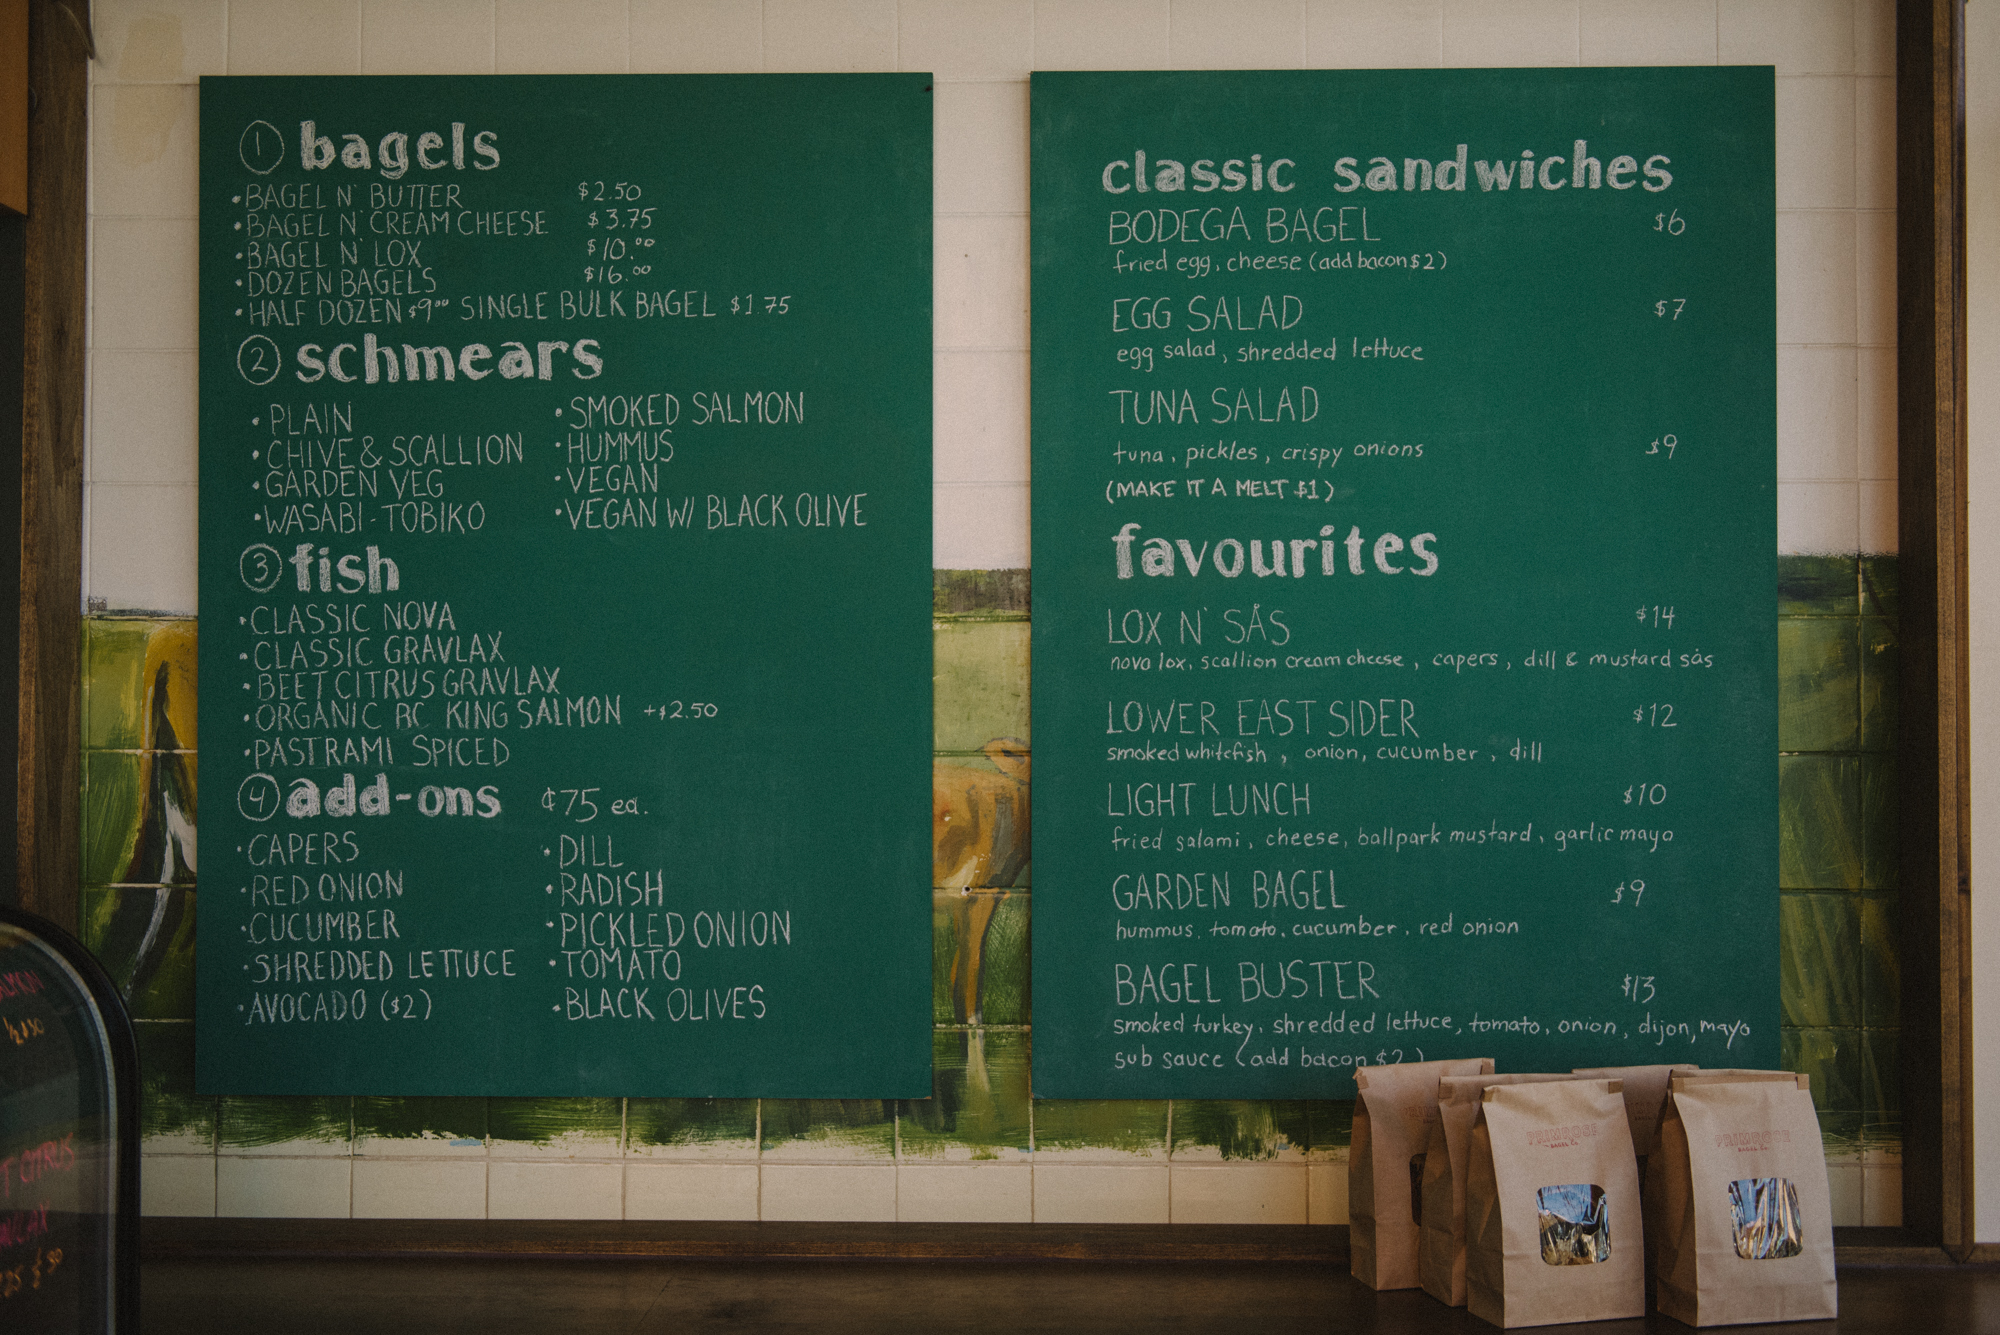 ① bagels
• BAGEL N' BUTTER $2.50
• BAGEL N' CREAM CHEESE $3.75
• BAGEL N' LOX $10.00
• DOZEN BAGELS $16.00
• HALF DOZEN $9.00 SINGLE BULK BAGEL $1.75
② schmears
• PLAIN
• CHIVE & SCALLION
• GARDEN VEG
• WASABI-TOBIKO
• SMOKED SALMON
• HUMMUS
• VEGAN
• VEGAN W/ BLACK OLIVE
③ fish
• CLASSIC NOVA
• CLASSIC GRAVLAX
• BEET CITRUS GRAVLAX
• ORGANIC BC KING SALMON +$2.50
• PASTRAMI SPICED
④ add-ons ¢75 ea.
• CAPERS
• RED ONION
• CUCUMBER
• SHREDDED LETTUCE
• AVOCADO ($2)
• DILL
• RADISH
• PICKLED ONION
• TOMATO
• BLACK OLIVES
classic sandwiches
BODEGA BAGEL $6
fried egg, cheese (add bacon $2)
EGG SALAD $7
egg salad, shredded lettuce
TUNA SALAD
tuna, pickles, crispy onions $9
(MAKE IT A MELT $1)
favourites
LOX N' SÅS $14
nova lox, scallion cream cheese, capers, dill & mustard sås
LOWER EAST SIDER $12
smoked whitefish, onion, cucumber, dill
LIGHT LUNCH $10
fried salami, cheese, ballpark mustard, garlic mayo
GARDEN BAGEL $9
hummus, tomato, cucumber, red onion
BAGEL BUSTER $13
smoked turkey, shredded lettuce, tomato, onion, dijon, mayo
sub sauce (add bacon $2)
PRIMROSE
BAGEL Co.
PRIMROSE
BAGEL Co.
CITRUS